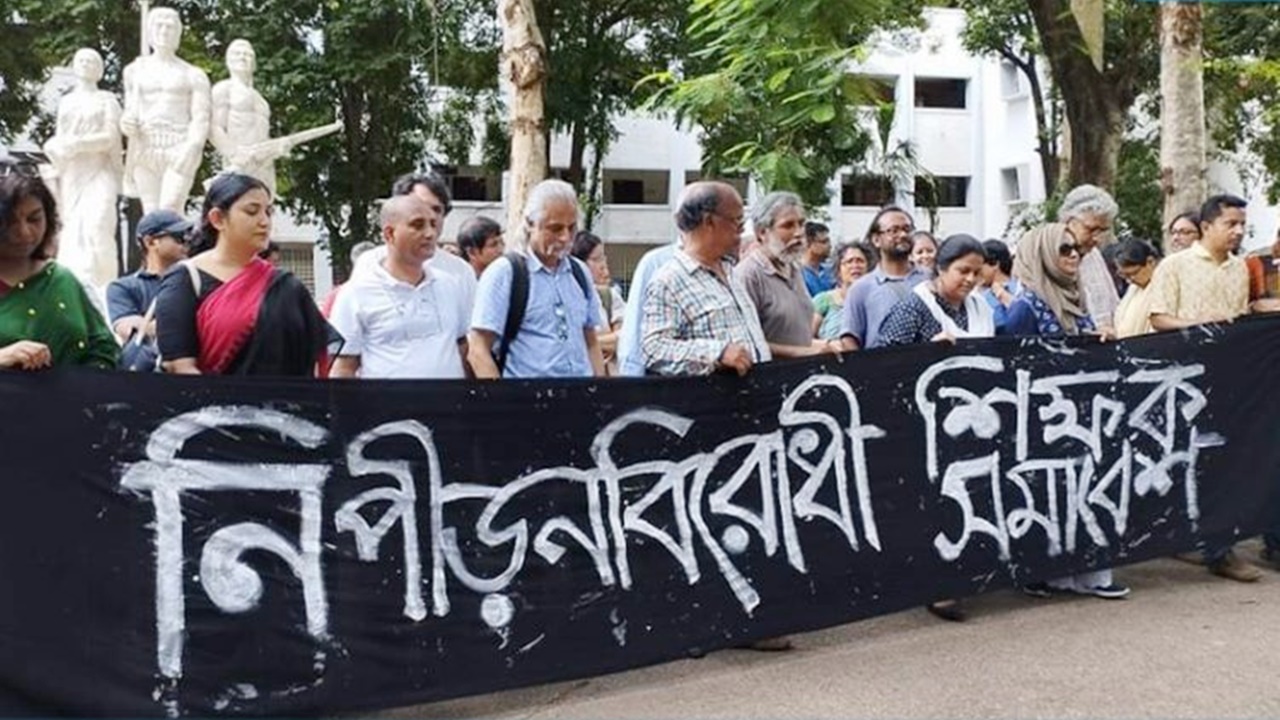 নিপীড়নবিরোধী শিক্ষক
সমাবেশ